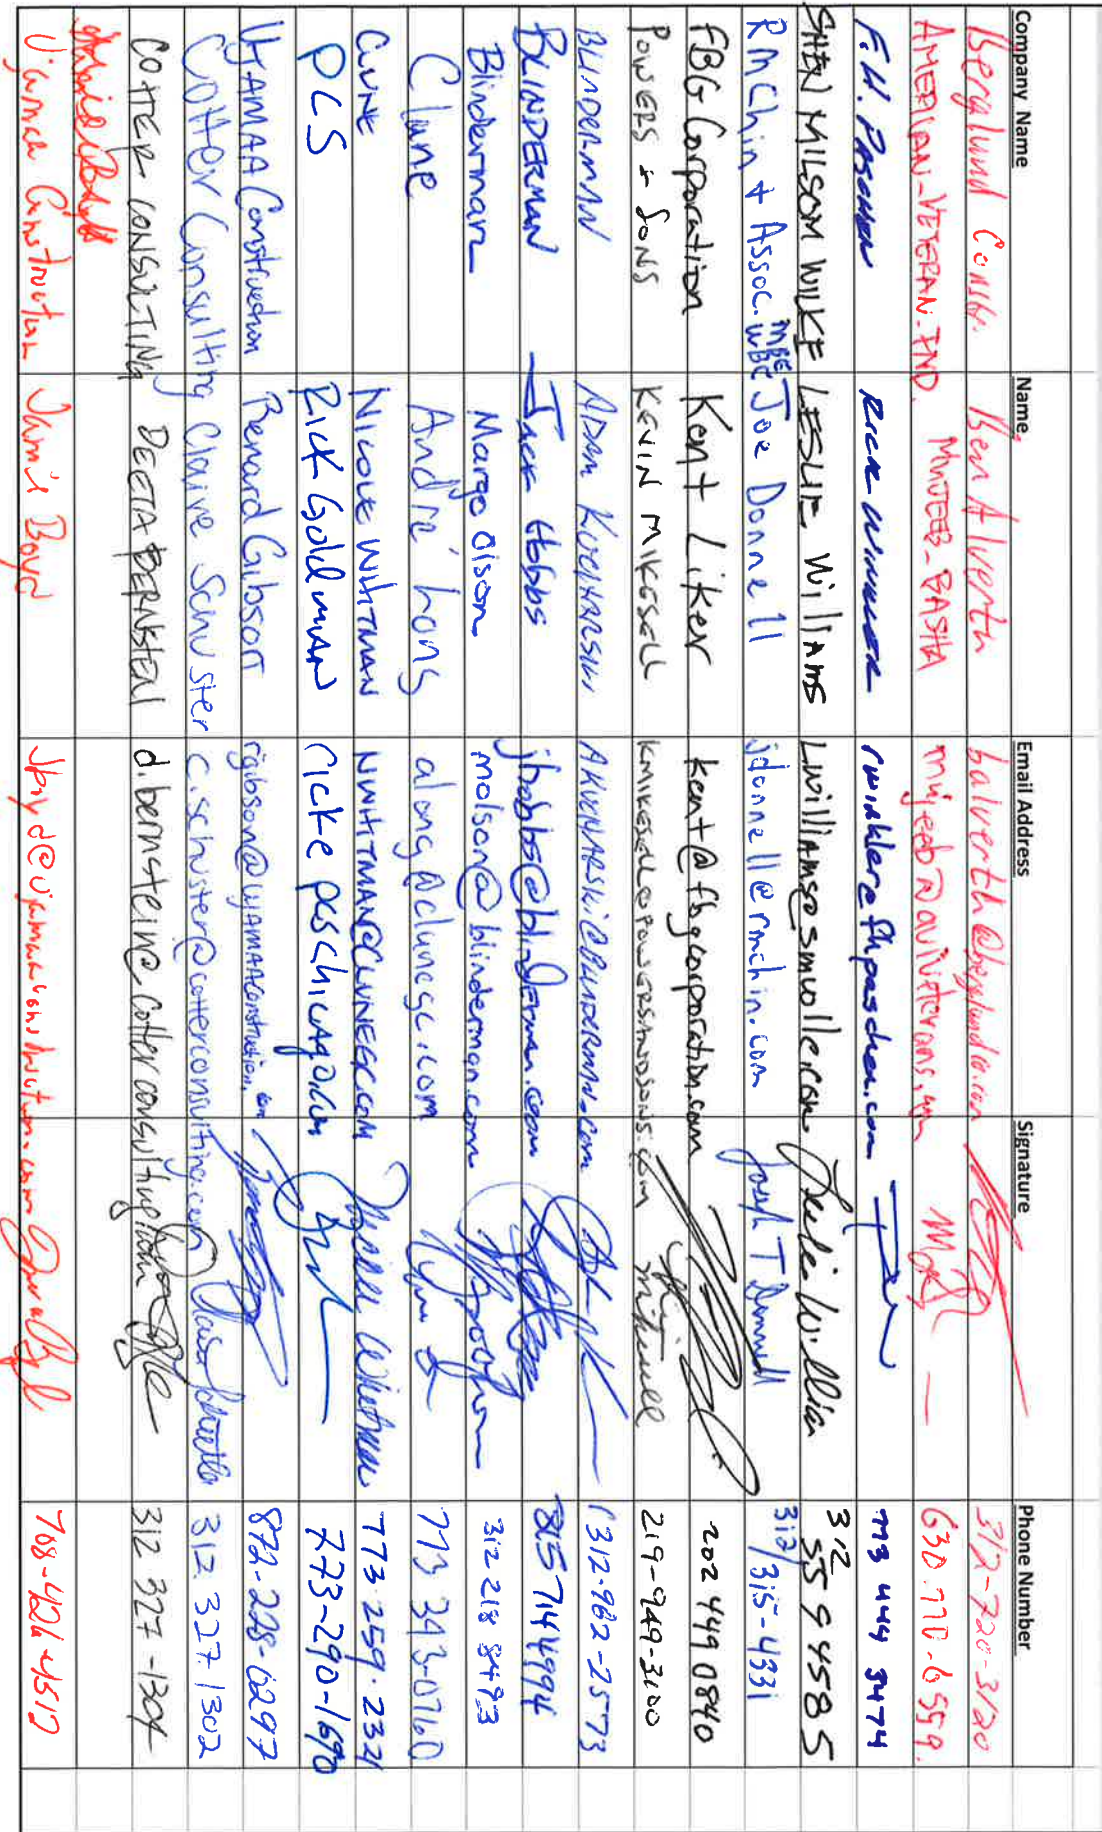 Company Name Name Email Address Signature Phone Number
Berglund Constr. Ben Alverth balverth@berglundco.com 312-720-3120
AMERICAN-VETERAN-IND. MUJEEB-BASHA 630.770.6559
F.H. PASCHEN RICK WINKLER rwinkler@fhpaschen.com 773 444 3474
SHEN MILSOM WILKE LESLIE WilliAMS Lwilliams@smwllc.com Leslie Williams 312 559 4585
RM Chin + Assoc. MBE WBE Joe Donnell jdonnell@rmchin.com Joseph T Donnell 312/315-4331
FBG Corporation Kent Liker kent@fbgcorporation.com 202 449 0840
POWERS & SONS KEVIN MIKESELL KMIKESELL@POWERSANDSONS.COM 219-949-3100
BLINDERMAN ADAM KUCHARSKI AKUCHARSKI@BLINDERMAN.com 312-982-2573
BLINDERMAN Jack Hobbs jhobbs@blinderman.com 815 714 4994
Blinderman Margo Olson molson@blinderman.com 312 218 8493
Clune André Long along@clunegc.com 773 343-0760
CLUNE NICOLE WHITMAN NWHITMAN@CLUNEGC.COM Nicole Whitman 773.259.2321
PCS RICK GoldMAN rick@pcschicago.com 773-290-1690
UJAMAA Construction Benard Gibson rgibson@UJAMAAConstruction.com 872-228-0297
Cotter Consulting Claire Schuster c.schuster@cotterconsulting.com 312 327.1302
COTTER CONSULTING DEETA BERNSTEIN d.bernstein@cotterconsulting.com 312 327-1304
Ujamaa Construction Jamie Boyd 708-426-4510